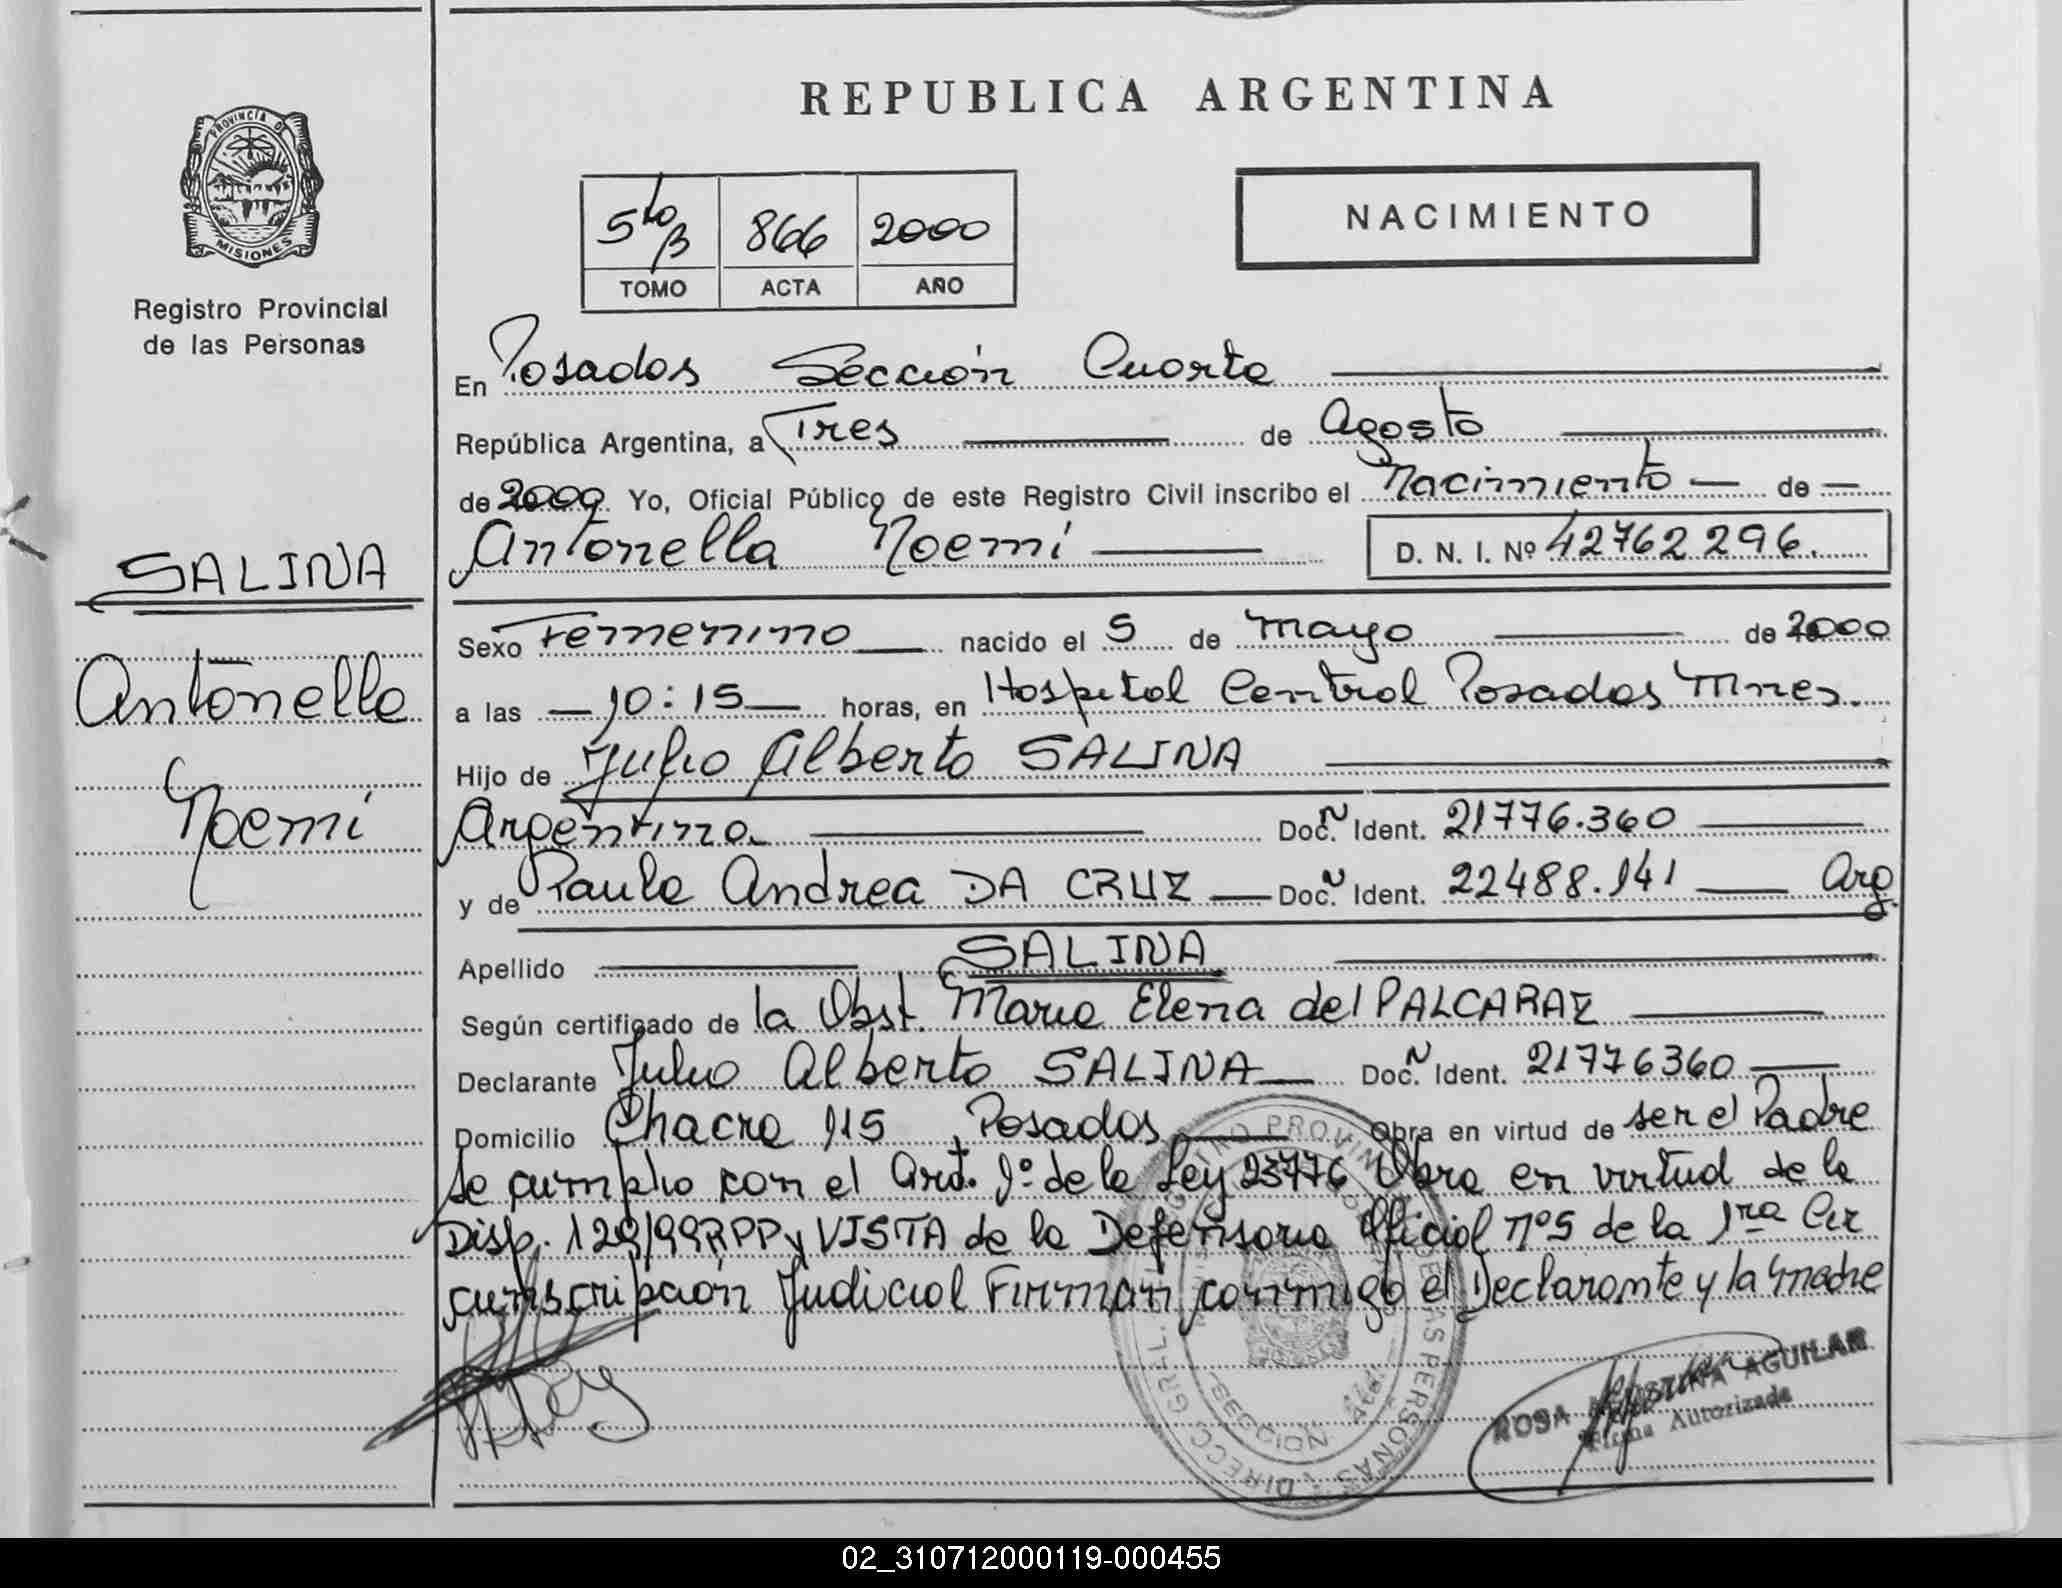 REPUBLICA ARGENTINA
PROVINCIA DE
MISIONES
Registro Provincial
de las Personas
5to B 866 2000
TOMO ACTA AÑO
NACIMIENTO
SALINA
Antonella
Noemí
En Posadas Sección Cuarta
República Argentina, a Tres de Agosto
de 2000 Yo, Oficial Público de este Registro Civil inscribo el Nacimiento de
Antonella Noemí D. N. I. Nº 42762296.
Sexo Femenino nacido el 5 de mayo de 2000
a las 10:15 horas, en Hospital Central Posadas Mnes.
Hijo de Julio Alberto SALINA
Argentino Doc. Ident. 21776.360
y de Paula Andrea DA CRUZ Doc. Ident. 22488.141 Arg.
Apellido SALINA
Según certificado de la Obst. Maria Elena del P ALCARAZ
Declarante Julio Alberto SALINA Doc. Ident. 21776360
Domicilio Chacra 115 Posadas Obra en virtud de ser el Padre
Se cumplio con el Art. 1º de la Ley 23776 Obra en virtud de la
Disp. 129/99 RPP y VISTA de la Defensoria Oficial nº5 de la 1ra Cir
cunscripción Judicial Firman conmigo el Declarante y la madre
ROSA AGUILAR
Firma Autorizada
SECCION 4ta.
02_310712000119-000455